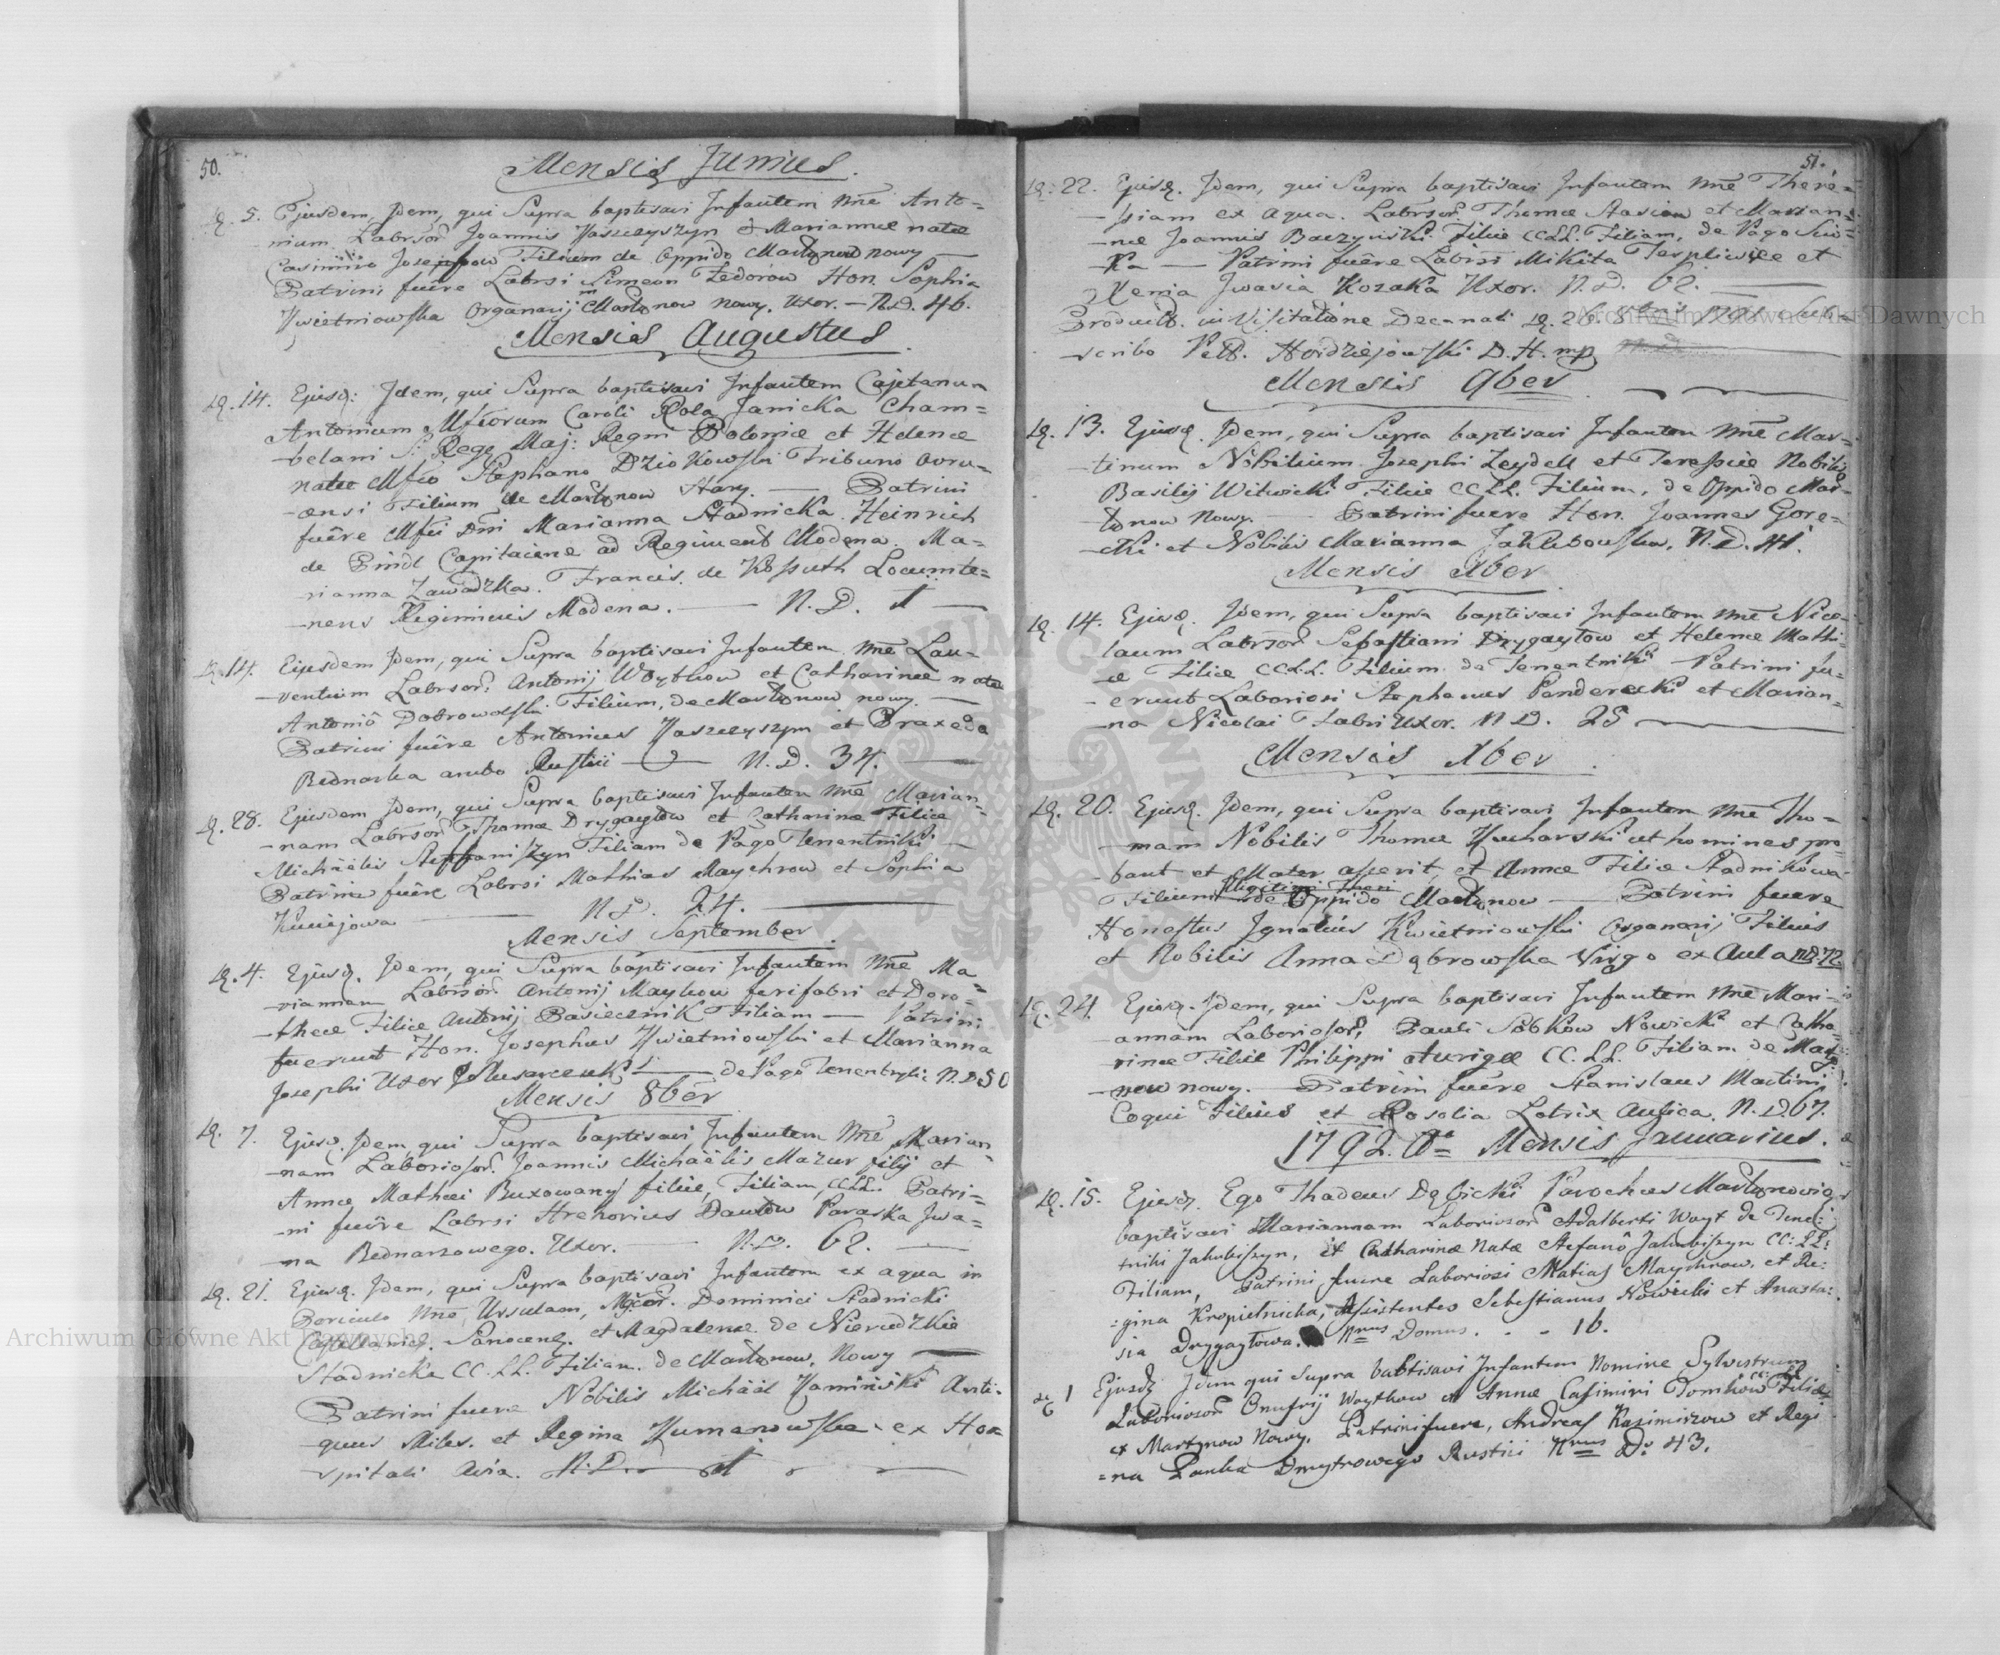 50.
Mensis Junius.
D. 5. Ejusdem, Jdem, qui Supra baptisavi Infantem Nne Anto=
-nium Labrsor Joannis Haszczyszyn et Mariannae natae
Casimiro Josephow Filium de Oppido Martynow nowy
Patrini fuêre Labrsi Simeon Fedorow Hon. Sophia
Kwietniowska Organarij Martynow nowy. Uxor. - N.D. 46.
Mensis Augustus.
D. 14. Ejusd: Jdem, qui Supra baptisavi Infantem Cajetanum
Antonium Mfcorum Caroli Rola Janicka Cham=
-belani S: Reg Maj: Regni Poloniae et Helenae
natae Mfco Stephano Dziokowski Tribuno Ovru=
-censi Filium de Martynow Stary. — Patrini
fuêre Mfci Dni Marianna Stadnicka Heinrich
de Pindt Capitaine ad Regiment Modena. Ma=
-rianna Zawadzka. Francis. de Kossuth Locumte=
-nens Regiminis Modena. — N.D. 1 —
D. 14. Ejusdem Jdem, qui Supra baptisavi Infantem Nne Lau=
-rentium Labrsor. Antonij Woytkow et Catharinae natae
Antoniô Dobrowolski Filium, de Martynow nowy. —
Patrini fuêre Antonius Haszczyszyn et Praxeda
Bednarka ambo Rustici — N.D. 34. —
D. 28. Ejusdem Jdem, qui Supra baptisavi Infantem Nne Marian=
-nam Labrsor Thomae Drygaytow et Catharinae Filiae
Michaëlis Steffaniszyn Filiam de Pago Tenentniki —
Patrini fuêre Labrsi Mathias Maychrow et Sophia
Kuniejowa — N.D. 24. —
Mensis September.
D. 4. Ejusd. Jdem, qui Supra baptisavi Infantem Nne Ma=
-riannam Labrsor. Antonij Maykow ferifabri et Doro=
-theae Filiae Antonij Pasiecznik Filiam — Patrini
fuerunt Hon. Josephus Kwietniowski et Marianna
Josephi Uxor — de Pago Tenentniki N.D 50
Mensis 8ber
D. 7. Ejusd. Jdem, qui Supra baptisavi Infantem Nne Marian=
-nam Laboriosor. Joannis Michaëlis Mazur filij et
Annae Mathei Buxowany filiae, Filiam, CCLL. Patri=
-ni fuêre Labrsi Hrehorius Pawlow Paraska Jwa=
-na Bednarzowego. Uxor. — N.D. 62. —
D. 21. Ejusd. Jdem, qui Supra baptisavi Infantem ex aqua in
Periculo Nne Ursulam, Mgcor. Dominici Stadnicki
Castellanid. Sanocens. et Magdalenae de Nieriedzkie
Stadnicka CC. LL. Filiam. de Martynow. Nowy —
Patrini fuêre Nobilis Michäel Kaminski Anti=
-quus Miles. et Regina Humanowska ex Hos=
-pitali Avia. N.D. 1 —
51.
D. 22. Ejusd. Jdem, qui Supra baptisavi Infantem Nne There=
-siam ex aqua. Labrsor. Thomae Stasiow et Marian=
-nae Joannis Baczynski Filiae CCLL. Filiam, de Pago Siw=
-ka — Patrini fuêre Labrsi Mikita Terpliwiec et
Xenia Jwasia Kozaka Uxor. N.D. 62. —
Product. in Visitatione Decanali D. 26. 8bris 1791 Sub=
-scribo Petr. Hordziejowski D.H. mp
Mensis 9ber —
D. 13. Ejusd. Jdem, qui Supra baptisavi Infantem Nne Mar=
-tinum Nobilium Josephi Zeydell et Teressiae Nobilis
Basilij Witwicki Filiae CCLL. Filium, de Oppido Mar=
-tynow Nowy. — Patrini fuere Hon. Joannes Gore=
-cki et Nobilis Marianna Jaklibowska, N.D. 41.
Mensis Xber
D. 14. Ejusd. Jdem, qui Supra baptisavi Infantem Nne Nico=
laum Labrsor Sebastiani Drygaytow et Helenae Mathi=
ae Filiae CCLL. Filium de Tenentniki Patrini fu=
-erunt Laboriosi Stephanus Penderecki et Marian=
-na Nicolai Fabri Uxor. N.D. 25 —
Mensis Xber.
D. 20. Ejusd. Jdem, qui Supra baptisavi Infantem Nne Tho=
-mam Nobilis Thomae Kucharski ut homines pro=
-bant et Mater asserit, et Annae Filiae Stadnikowa
Filium Illegitimi Thori de Oppido Martynow — Patrini fuere
Honestus Ignatius Kwietniowski Organarij Filius
et Nobilis Anna Dąbrowska Virgo ex Aula ND 72.
D. 24. Ejusd. Jdem, qui Supra baptisavi Infantem Nne Mari=
-annam Laboriosor. Pauli Sobkow Nowicki et Catha=
-rinae Filiae Philippi Aurigae CC. LL. Filiam de Marty=
-now nowy. — Patrini fuêre Stanislaus Martini
Coqui Filius et Rosalia Lotrix Aulica. N.D. 67.
1792. Ao Mensis Januarius.
D. 15. Ejusd. Ego Thadeus Dębicki Parochus Martynovien
baptisavi Mariannam Laboriosor Adalberti Woyt de Tenet=
-niki Jakubiszyn, et Catharinae Natae Stefanô Jakubiszyn CC: LL:
Filiam, Patrini fuere Laboriosi Matias Maychrow, et Re:
:gina Kropielnicka, Assistentes Sebestianus Nowicki et Anasta:
sia Drygaytowa. Nrus Domus. . - 16.
D 1 Ejusd. Jdem qui Supra babtisavi Infantem Nomine Sylvestrum
Laboriosor Onufrij Woytkow et Annae Casimiri Domikow CC LL Filiae
ex Martynow Nowy. Patrini fuere, Andreas Kazimirow et Regi
=na Panka Dmytrowego Rustici Nrus Do: 43.